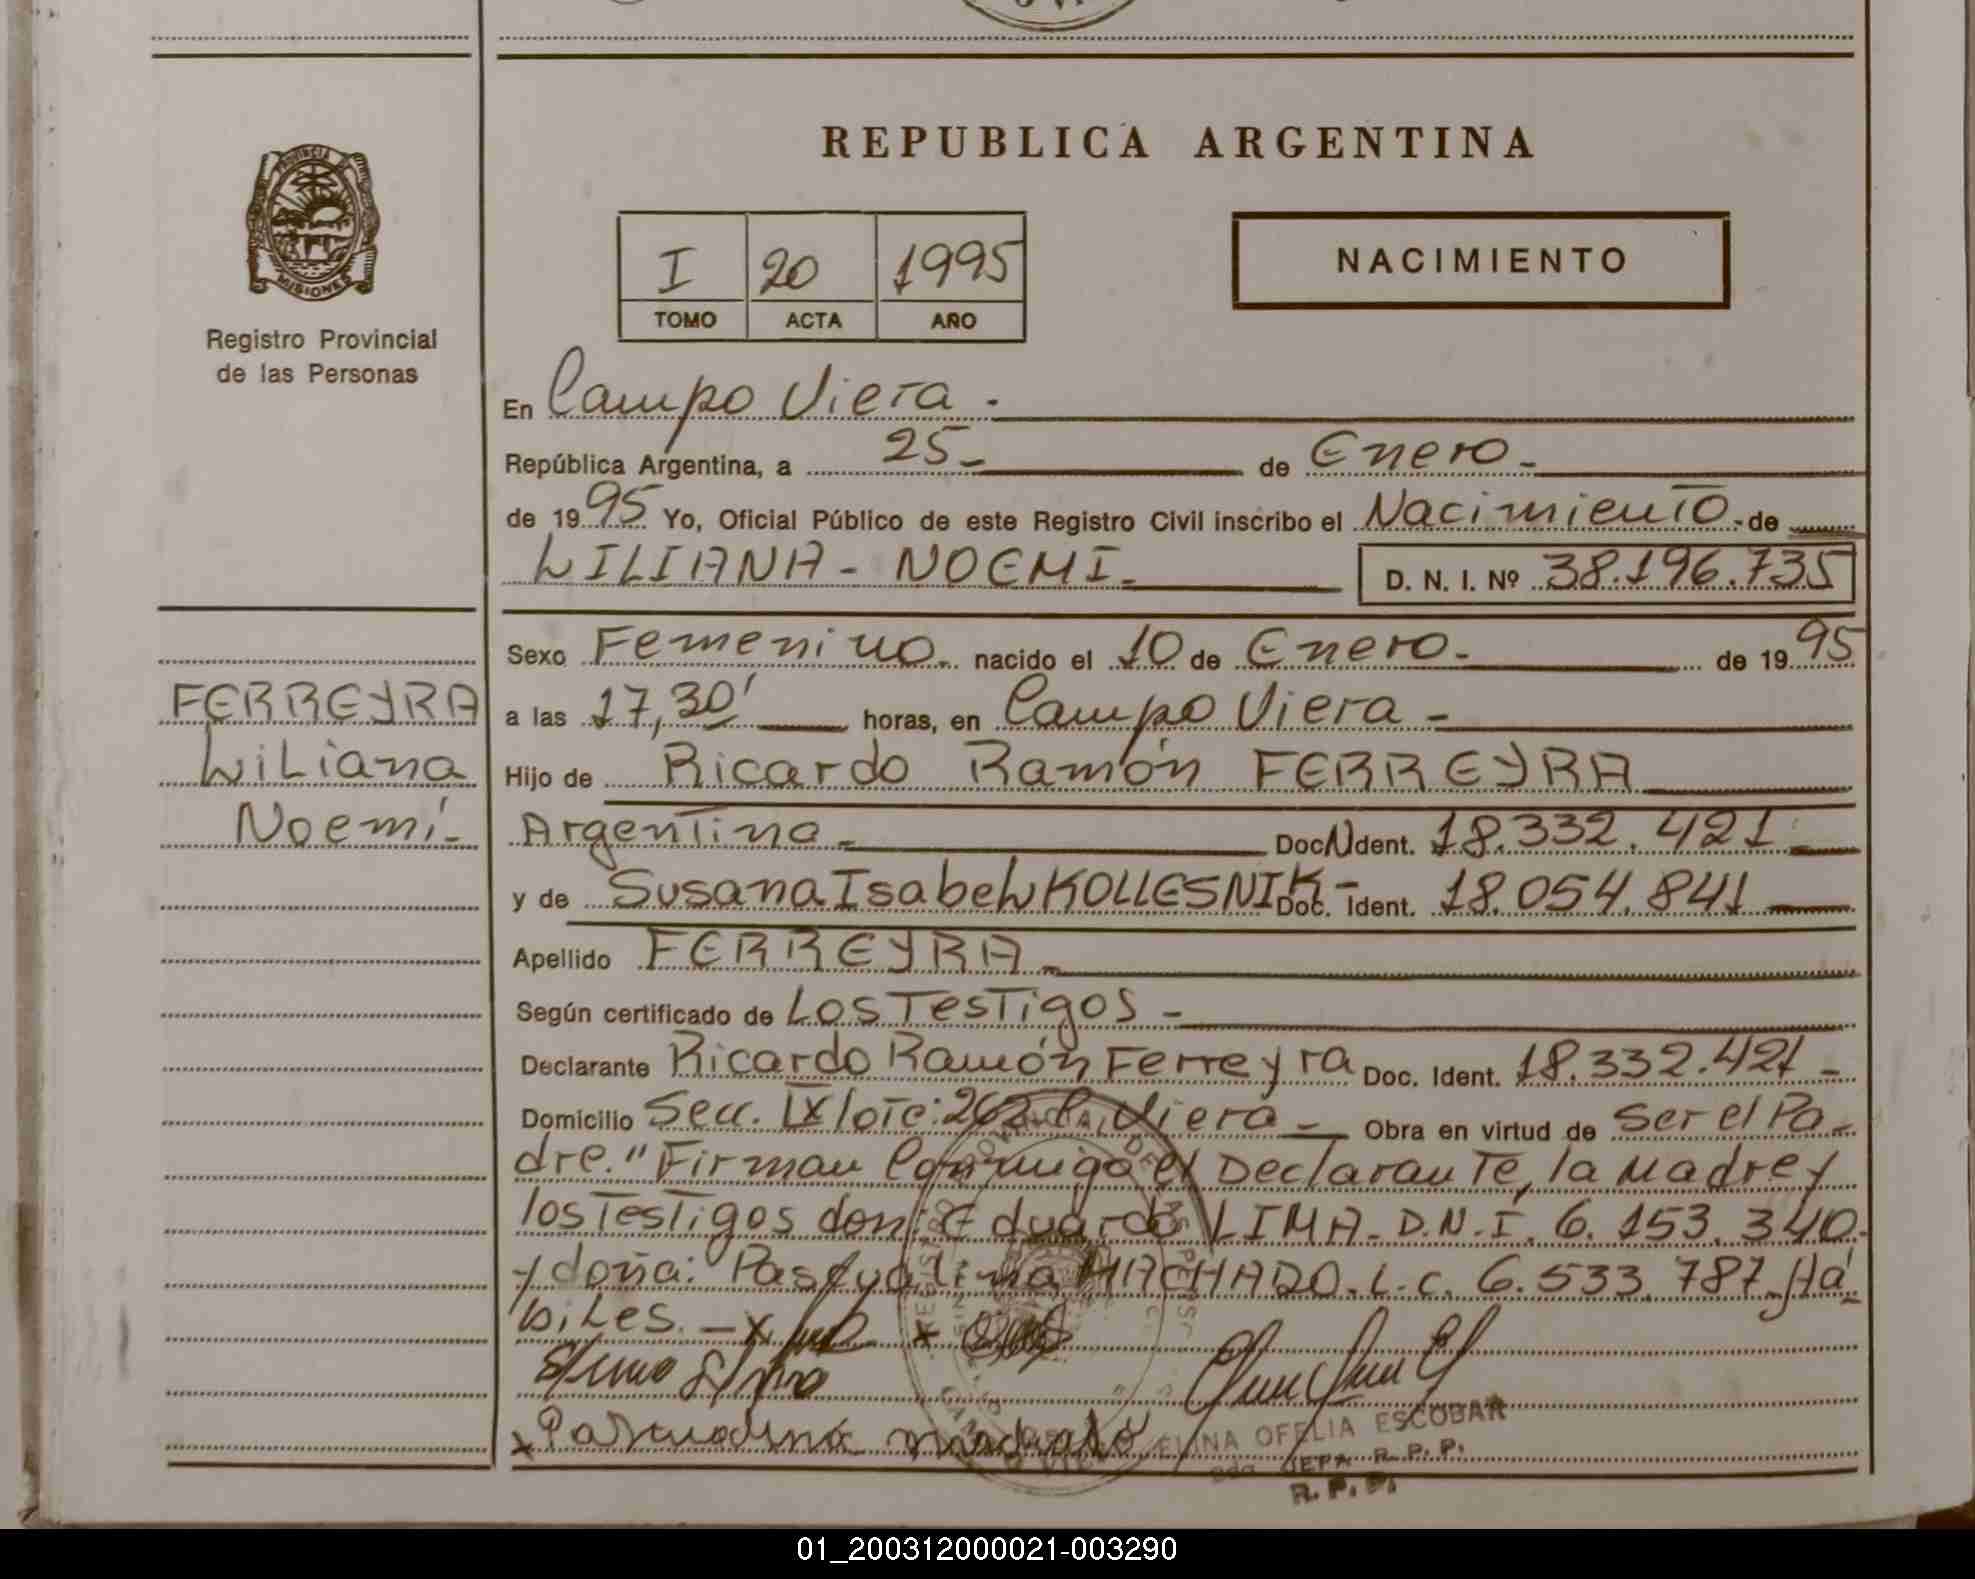 REPUBLICA ARGENTINA
PROVINCIA DE
MISIONES
Registro Provincial
de las Personas
I 20 1995
TOMO ACTA AÑO
NACIMIENTO
En Campo Viera.
República Argentina, a 25 de Enero
de 1995 Yo, Oficial Público de este Registro Civil inscribo el Nacimiento de
LILIANA - NOEMI
D. N. I. Nº 38.196.735
Sexo Femenino nacido el 10 de Enero. de 1995
a las 17,30' horas, en Campo Viera
Hijo de Ricardo Ramón FERREYRA
Argentina Doc. Ident. 18.332.421
y de Susana Isabel KOLLESNIK Doc. Ident. 18.054.841
Apellido FERREYRA
Según certificado de Los Testigos
Declarante Ricardo Ramón Ferreyra Doc. Ident. 18.332.421
Domicilio Secc. IX lote: 262 C. Viera Obra en virtud de ser el Pa-
dre." Firman Conmigo el Declarante, la Madre y
los Testigos don: Eduardo LIMA - D.N.I. 6.153.340
y doña: Pascualina MACHADO. L.C. 6.533.787 Há-
biles.
Pascualina machado
ELINA OFELIA ESCOBAR
R. P. P.
R. P. P.
FERREYRA
Liliana
Noemí
01_200312000021-003290